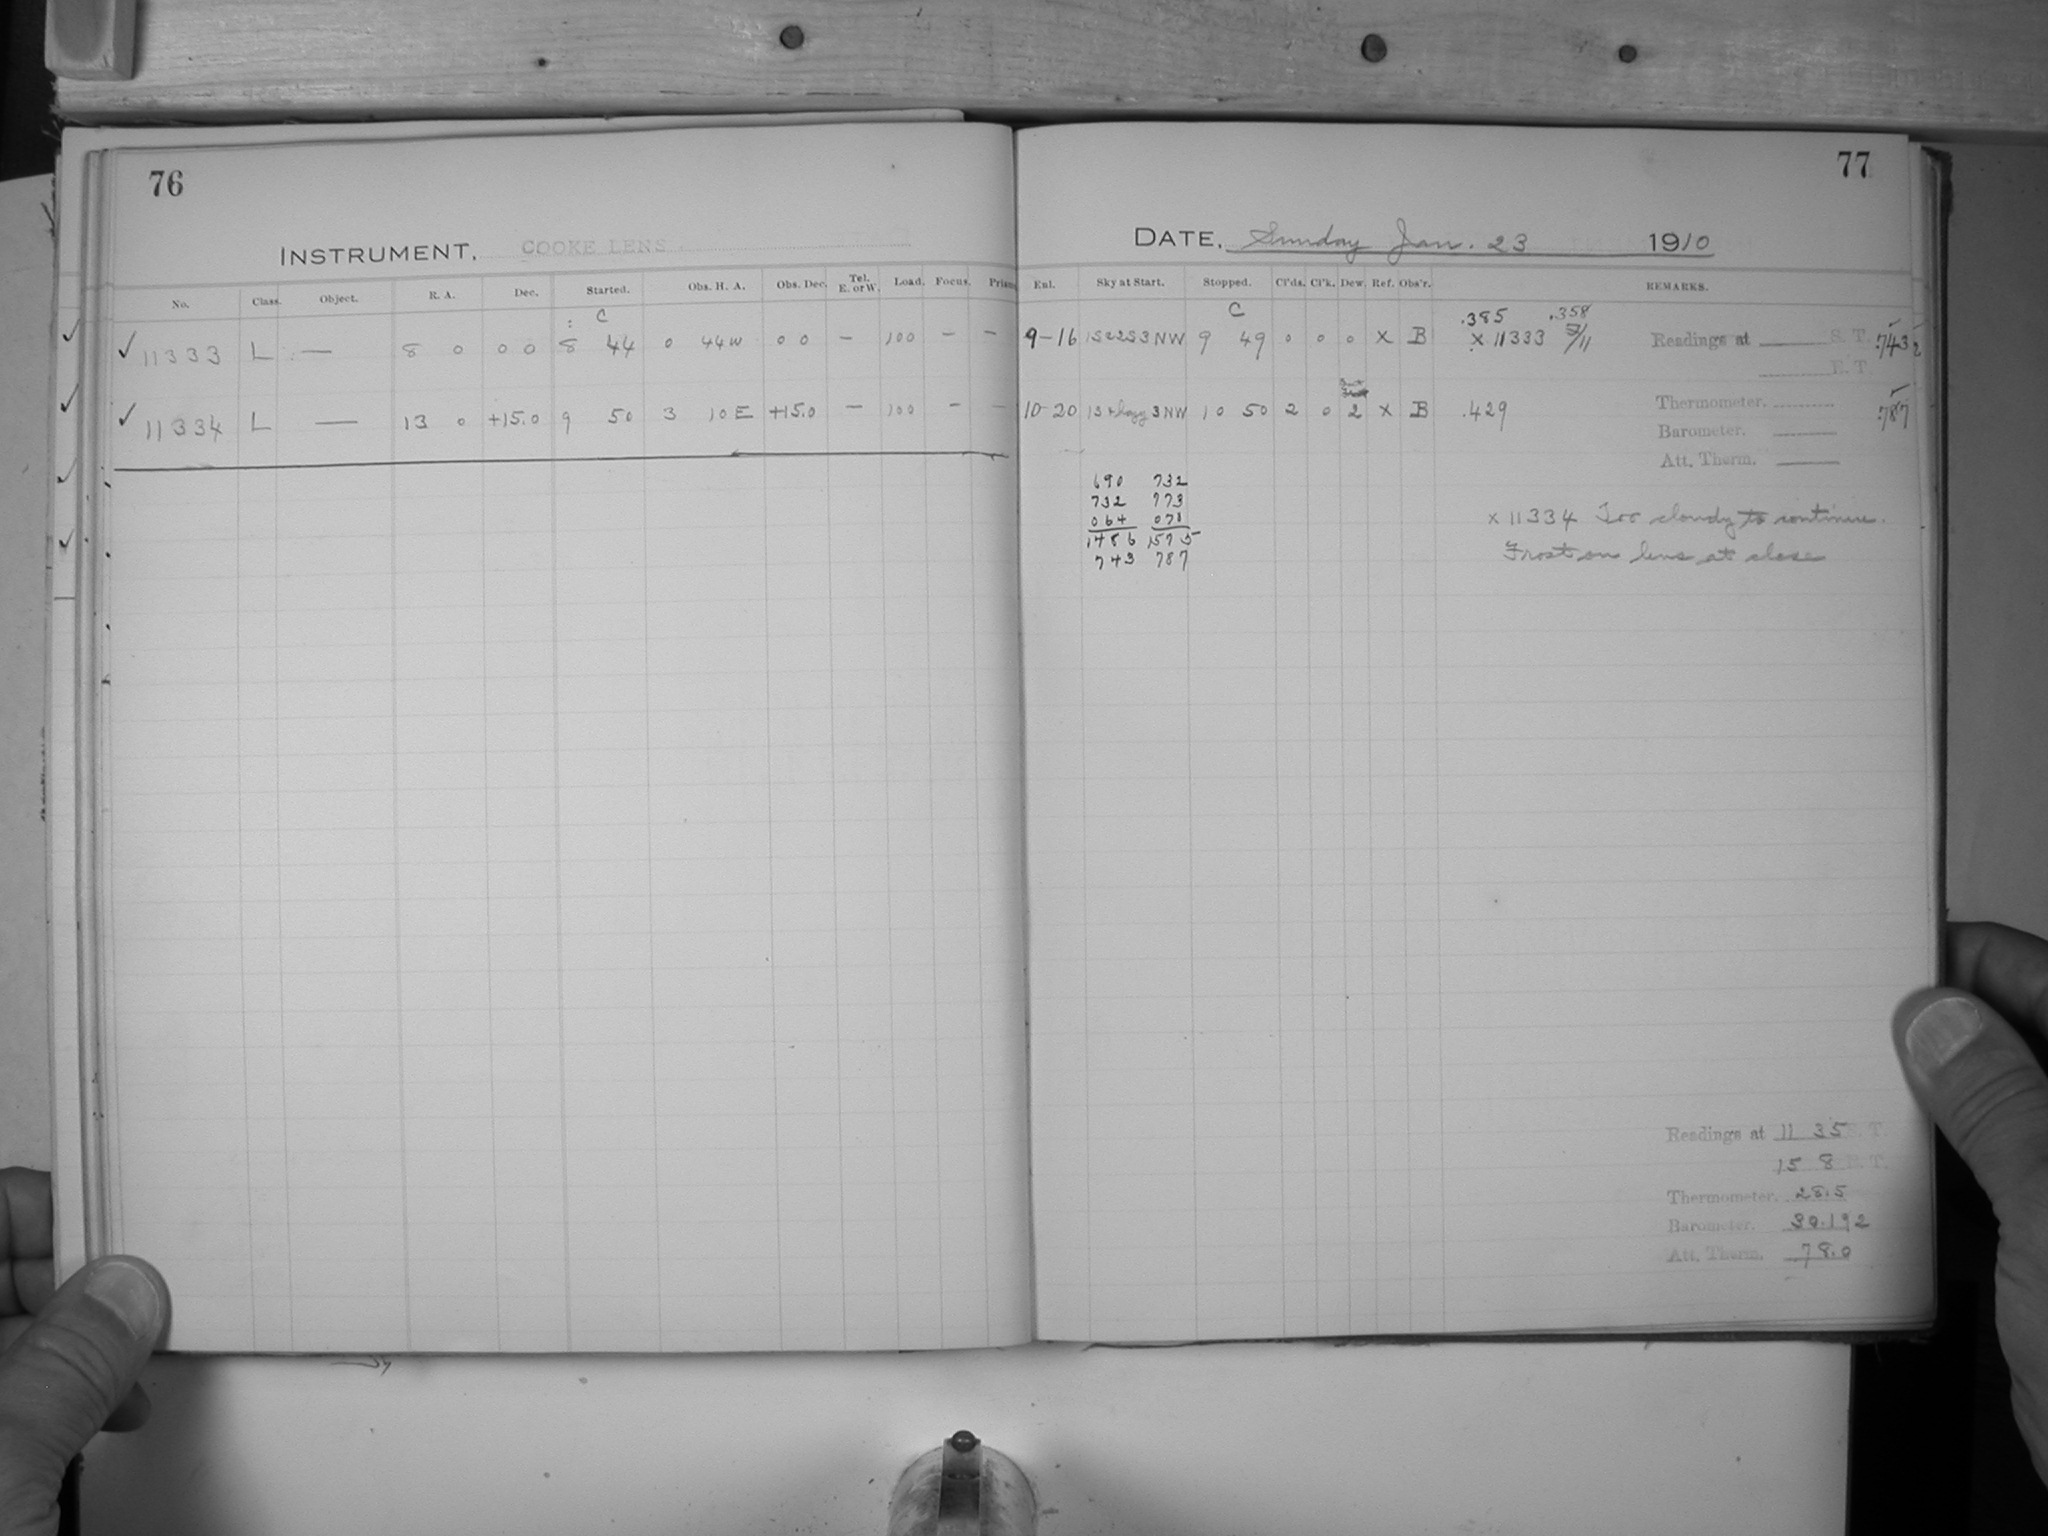 76
INSTRUMENT. COOKE LENS
No. Class. Object. R. A. Dec. Started. Obs. H. A. Obs. Dec. Tel. E. or W. Load. Focus. Prism
: C
✓ 11333 L — 8 0 0 0 8 44 0 44W 0 0 — 100 — —
✓ 11334 L — 13 0 +15.0 9 50 3 10E +15.0 — 100 — —
77
DATE, Sunday Jan. 23 1910
Exl. Sky at Start. Stopped. Cl'ds. Cl'k. Dew. Ref. Obs'r. REMARKS.
C .385 .358
9-16 1S2S3NW 9 49 0 0 0 X B x 11333 Readings at S. T. .743
E. T.
10-20 3NW 10 50 2 0 2 X B .429 Thermometer. .787
Barometer.
Att. Therm.
690 732
732 773
064 078
1486 1575
743 787
x 11334 Too cloudy to continue.
Frost on lens at close
Readings at 11 35 S. T.
15 8 E. T.
Thermometer. 28.5
Barometer. 30.192
Att. Therm. 78.0